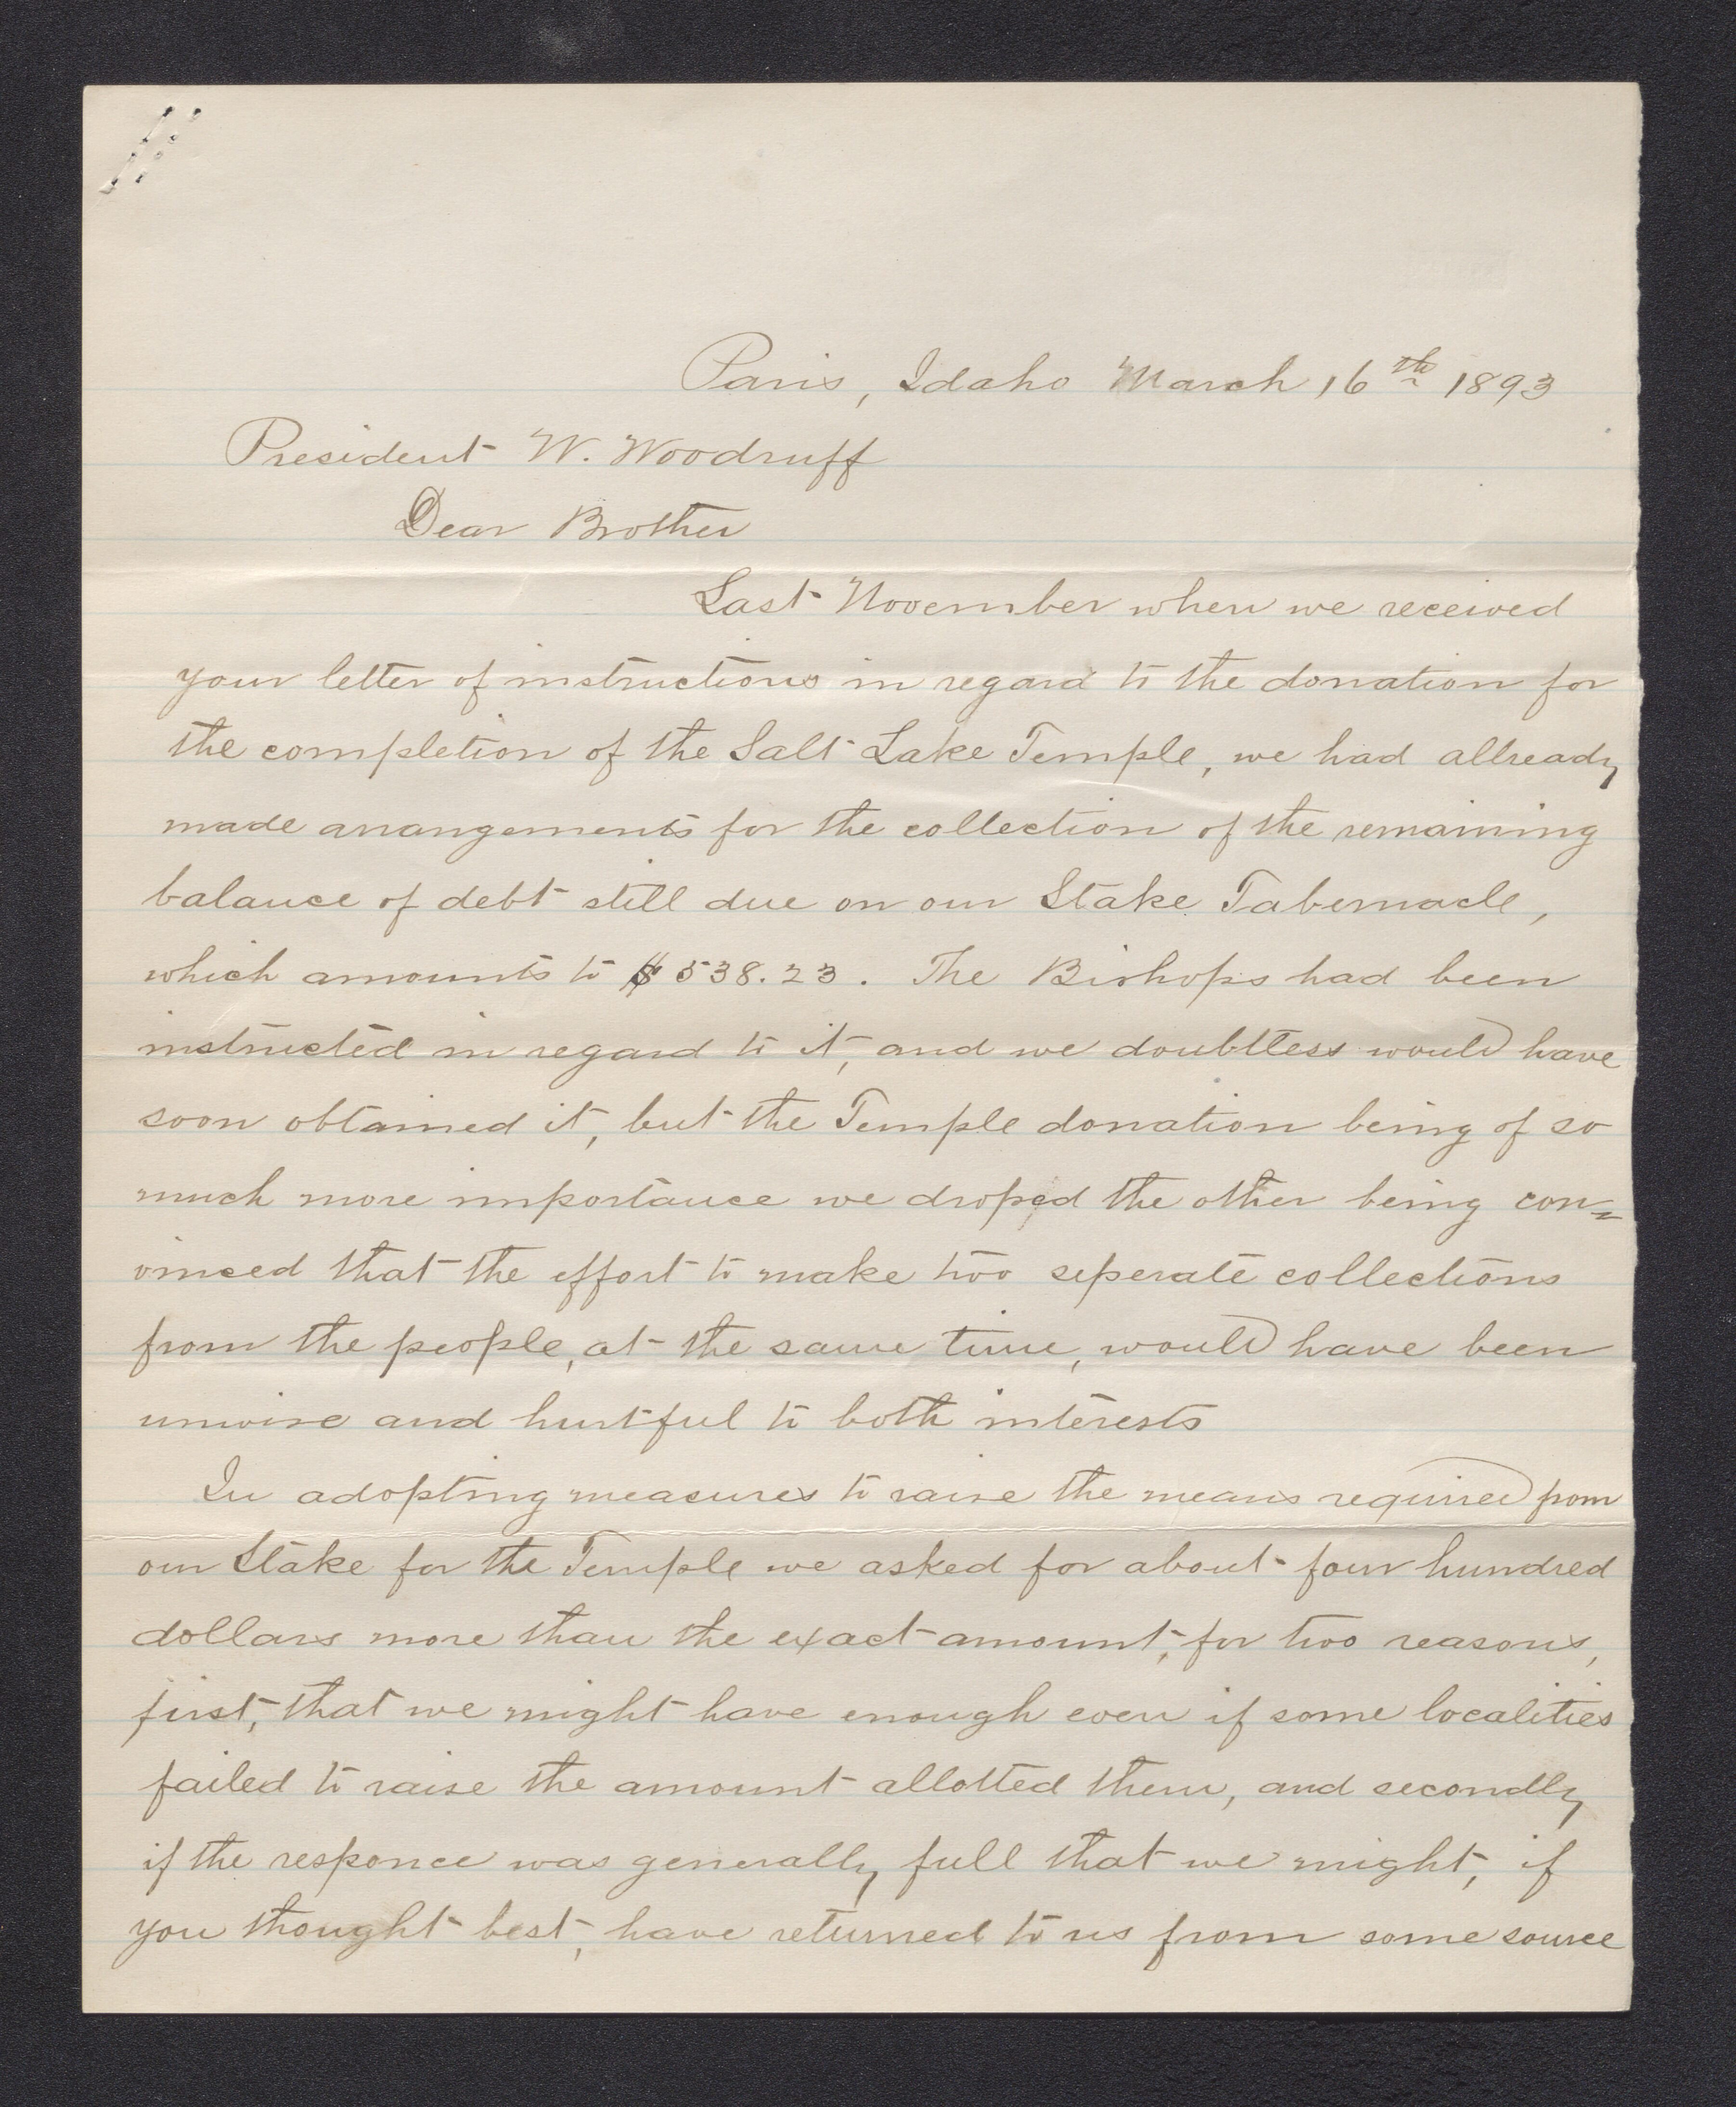 Paris, Idaho March 16th 1893
President W. Woodruff
Dear Brother
Last November when we received
your letter of instructions in regard to the donation for
the completion of the Salt Lake Temple, we had allready
made arangements for the collection of the remaining
balance of debt still due on our Stake Tabernacle,
which amounts to $538.23. The Bishops had been
instructed in regard to it, and we doubtless would have
soon obtained it, but the Temple donation being of so
much more importance we droped the other being con=
vinced that the effort to make two seperate collections
from the people, at the same time, would have been
unwise and hurtful to both interests
In adopting measures to raise the means required from
our Stake for the Temple we asked for about four hundred
dollars more than the exact amount, for two reasons,
first, that we might have enough even if some localities
failed to raise the amount allotted them, and secondly
if the responce was generally full that we might, if
you thought best, have returned to us from some source